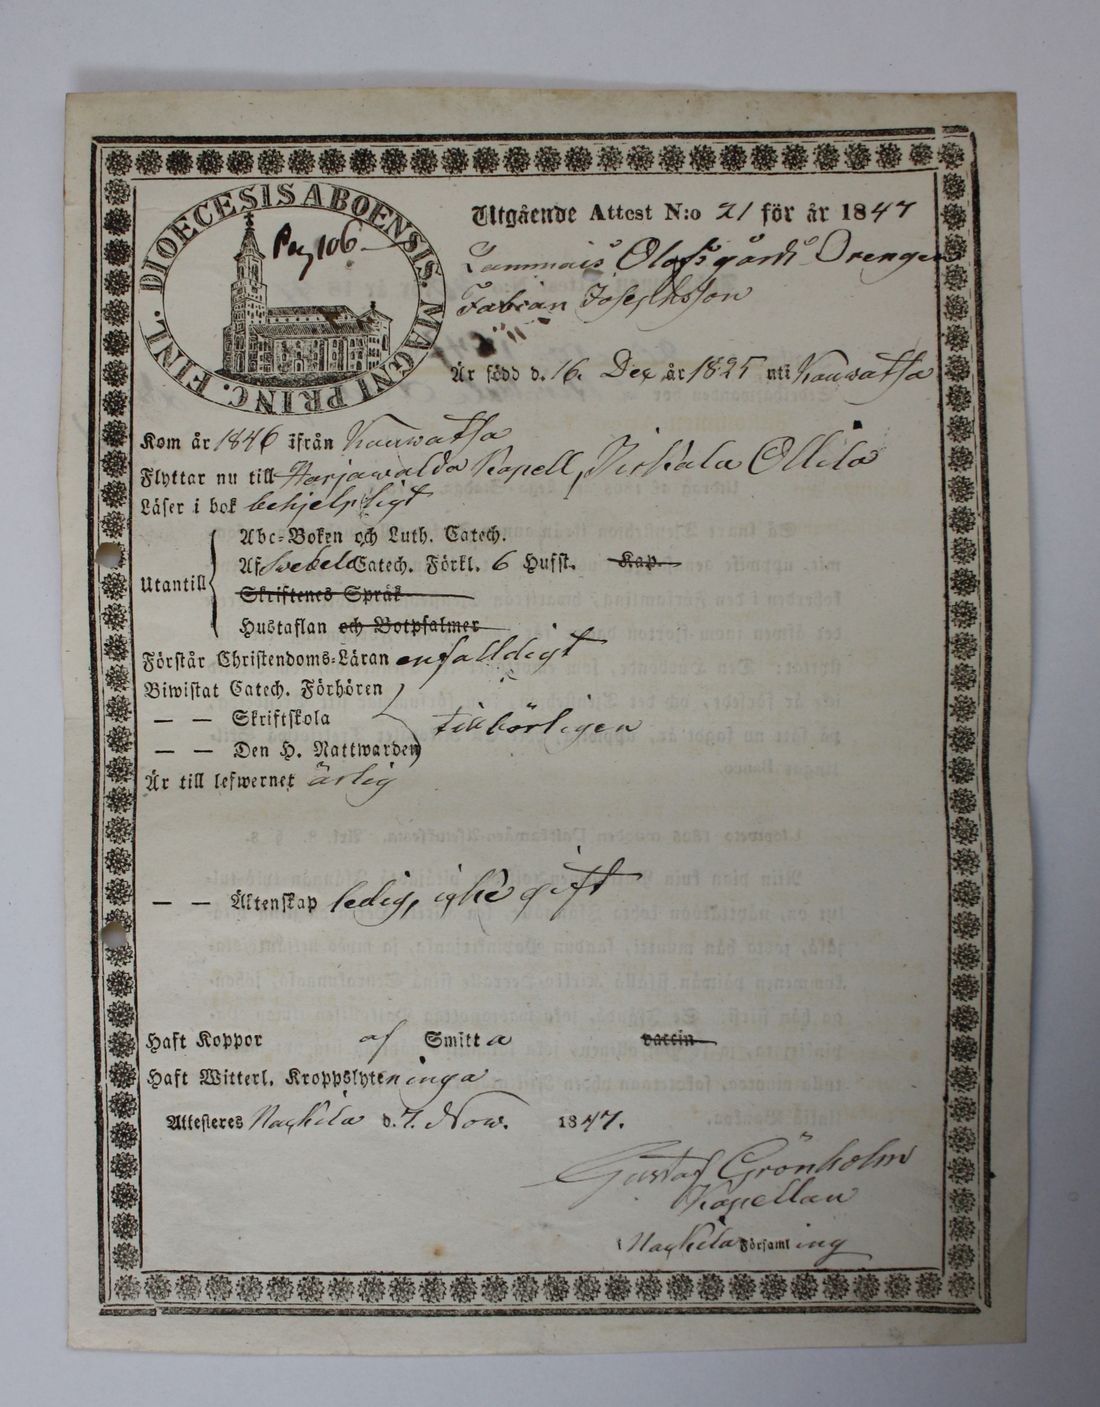 DIOECESIS ABOENSIS. MAGNI PRINC. FINL.
Pag 106
Utgående Attest N:o 21 för år 1847
Lammais Olofsgårds Drengen
Fabian Josephsson
Är född d. 16. Dec år 1825 uti Kauwatsa
Kom år 1846 ifrån Kauwatsa
Flyttar nu till Harjawalda Kapell, Pirkala Ollila
Läser i bok behjelpligt
Abc-Boken och Luth. Catech.
Af Svebelii Catech. Förkl. 6 Hufst. Kap.
Utantill
Skriftenes Språk
Hustaflan och Botpsalmer
Förstår Christendoms-Läran enfalldigt
Biwistat Catech. Förhören
— — Skriftskola
tillbörligen
— — Den H. Nattwarden
Är till lefwernet ärlig
— — Äktenskap ledig, icke gift
Haft Koppor af Smitta vaccin
Haft Witterl. Kroppslyten inga
Attesteras Nackila d. 7. Now. 1847.
Gustaf Grönholm
Kapellan
i Nackila Församling